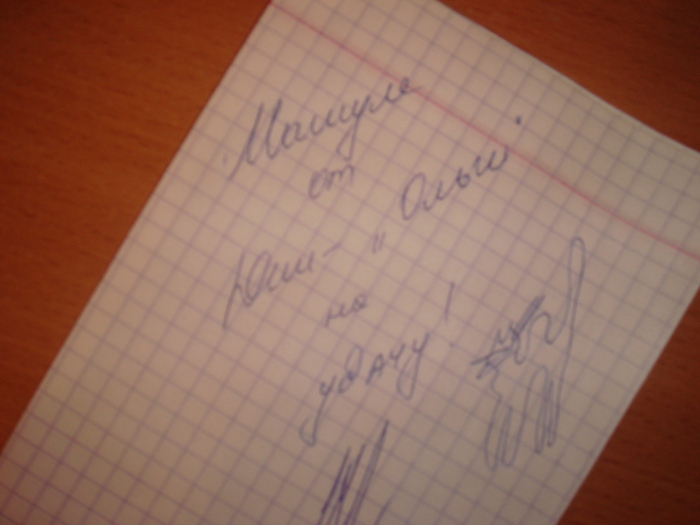 Машуле
от
Юли- и Ольги
на
удачу!